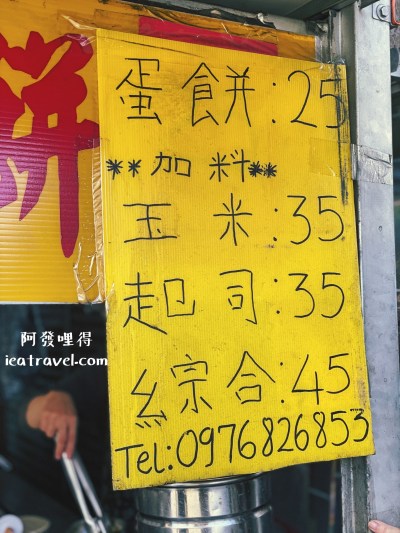 餅
蛋餅:25
**加料**
玉米:35
起司:35
綜合:45
Tel:0976826853
阿發哩得
ieatravel.com